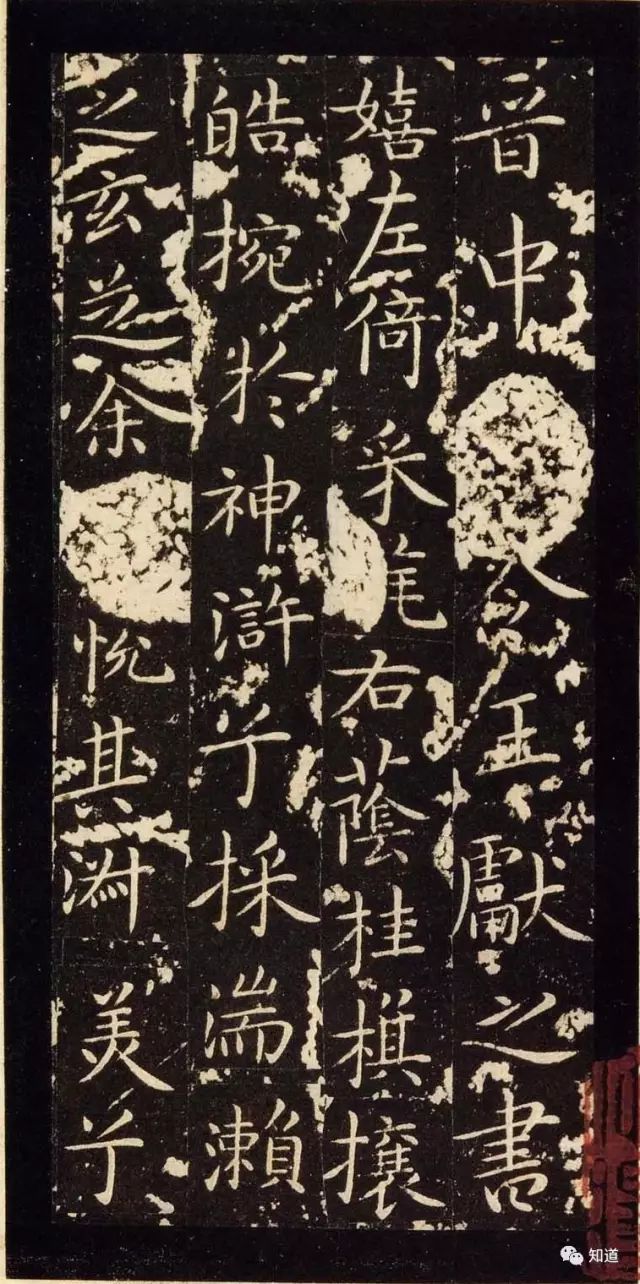 晉中令王獻之書
嬉左倚采旄右蔭桂旗攘
皓捥於神滸兮採湍瀨
之玄芝余悅其淑美兮
知道